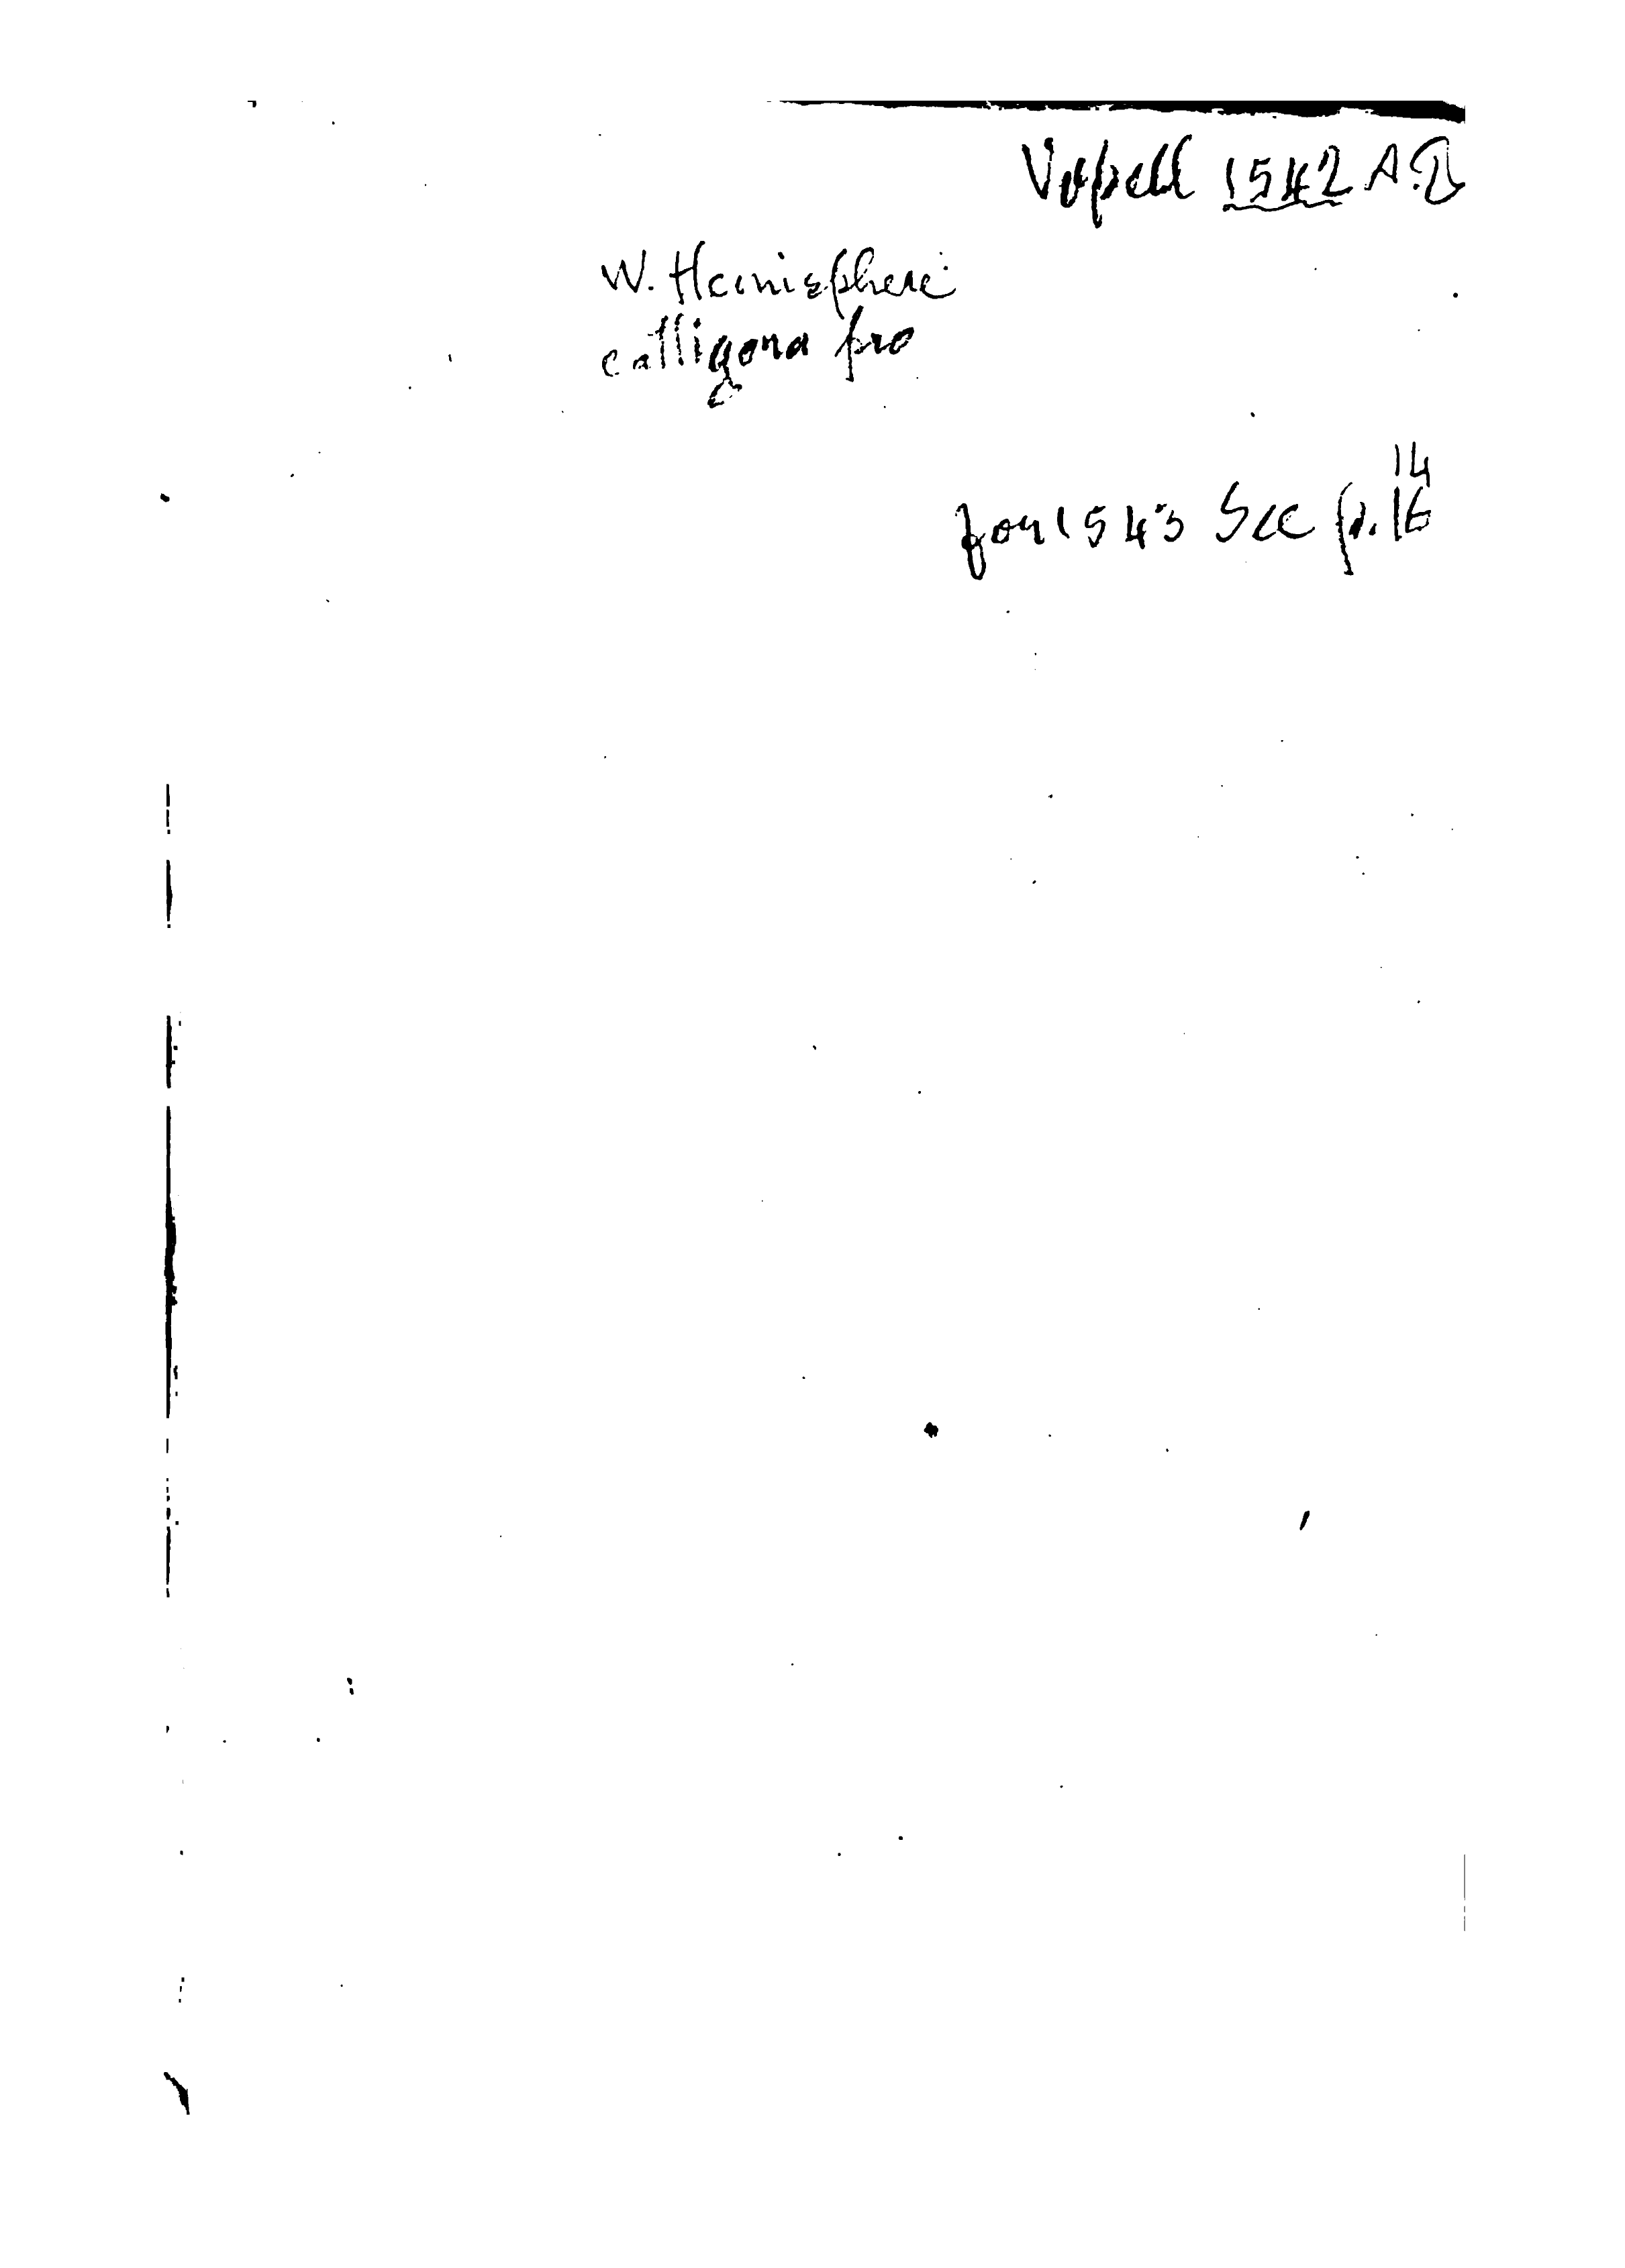 Vopell 1542 A.D
W. Hemisphere
cattigora pro
14
for 1543 See p. 16